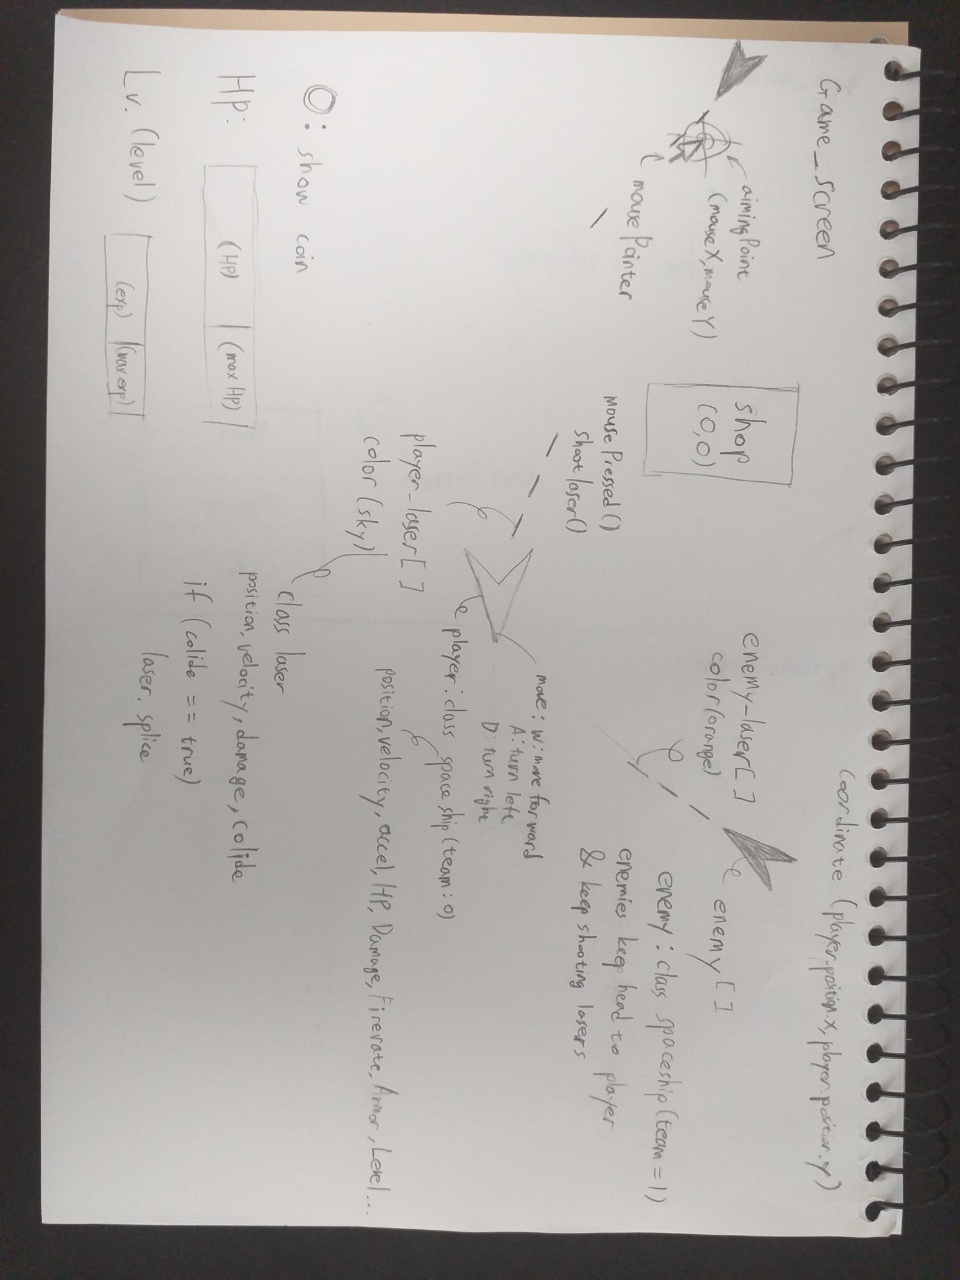 Game_screen
Coordinate (player.position.x, player.position.y)
aimingPoint
(mouseX, mouseY)
mousePointer
shop
(0,0)
mousePressed()
shootlaser()
enemy-laser[ ]
color(orange)
enemy[ ]
enemy : class spaceship(team = 1)
enemies keep head to player
& keep shooting lasers
move : W : move forward
A : turn left
D : turn right
player : class spaceship(team : 0)
position, velocity, accel, HP, Damage, Firerate, Armor, Level...
player-laser[ ]
color(sky)
class laser
position, velocity, damage, colide
if (colide == true)
laser. splice
O : show coin
Hp: (HP) (max HP)
Lv. (level) (exp) (max exp)